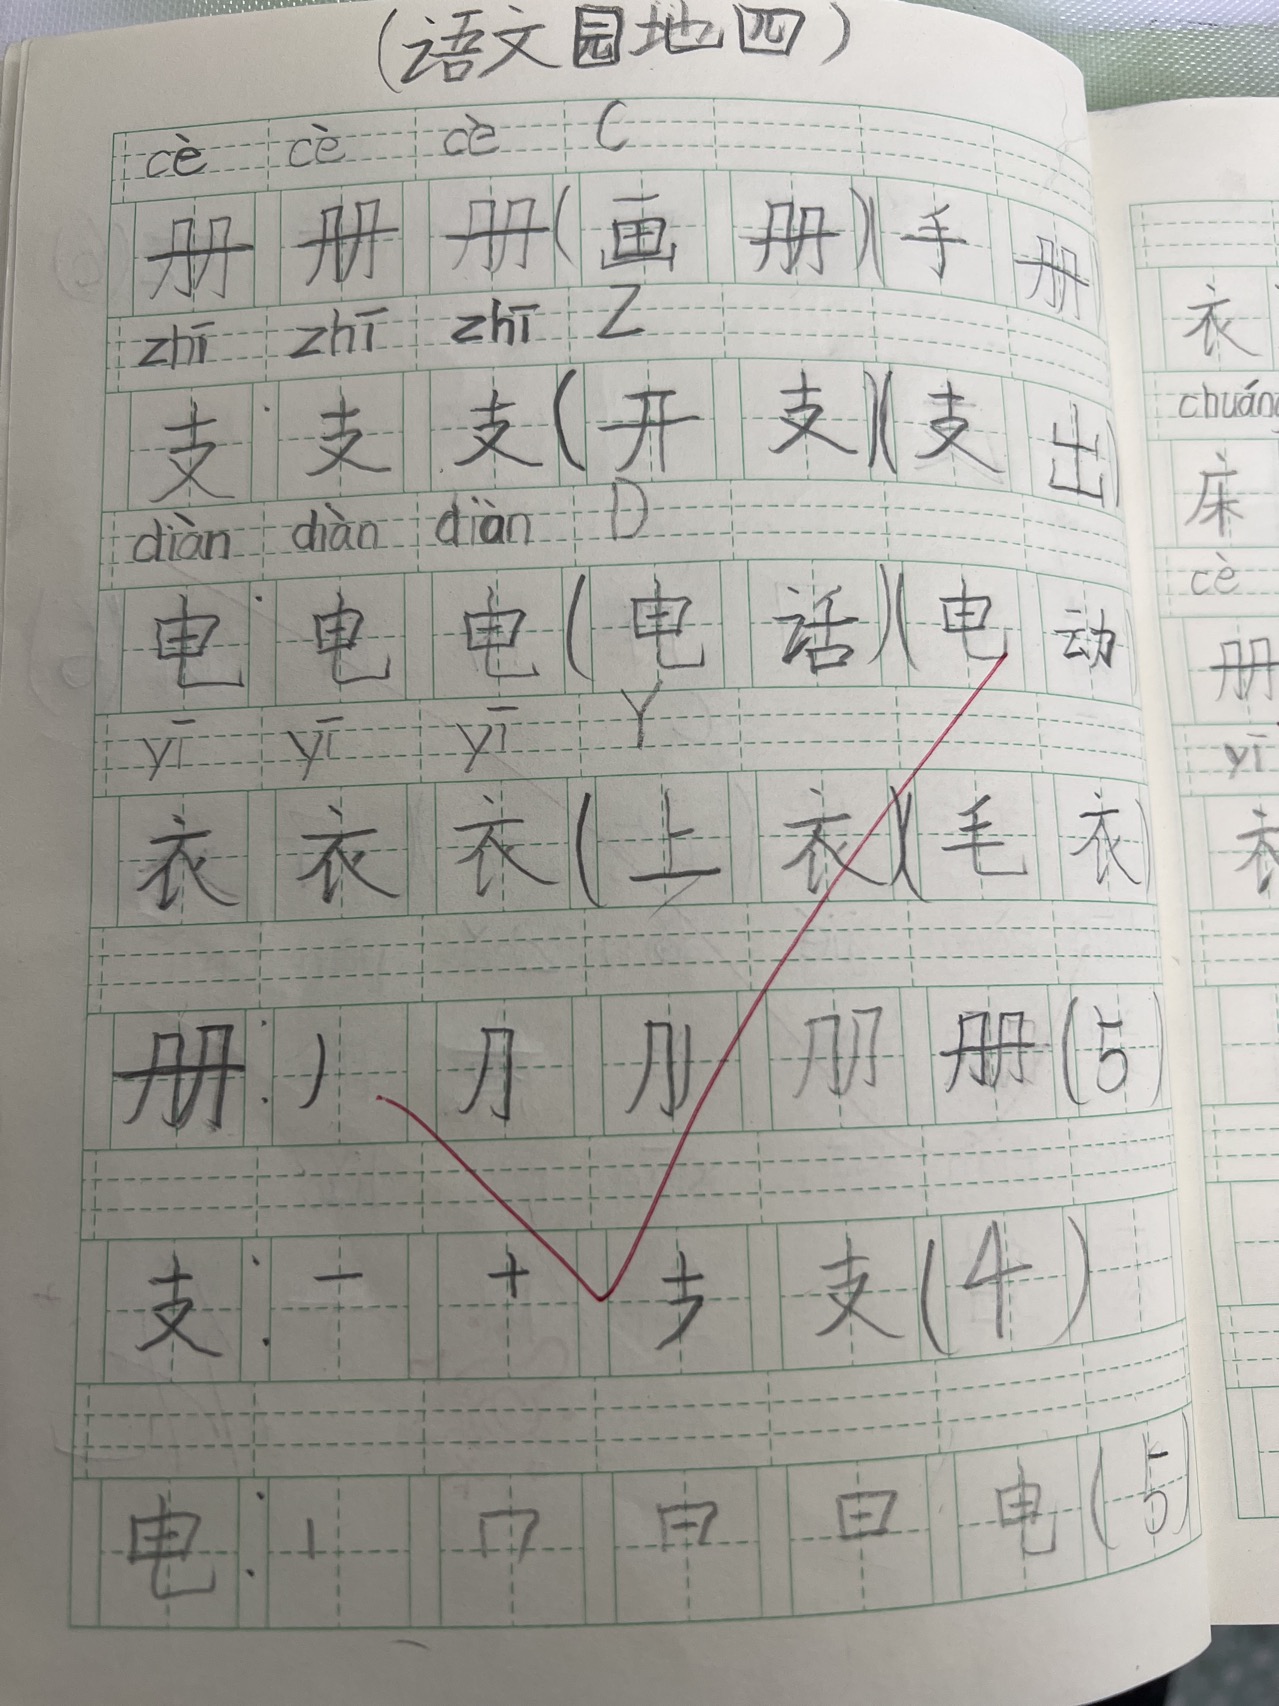 (语文园地四)
cè cè cè C
册 册 册(画 册)(手 册
zhī zhī zhī Z
支 支 支(开 支)(支 出)
diàn diàn diàn D
电 电 电(电 话)(电 动)
yī yī yī Y
衣 衣 衣(上 衣)(毛 衣)
册:丿 ⺆ 册(5)
支:一 十 支(4)
电:丨 冂 日 电(5)
衣
chuáng
床
cè
册
yī